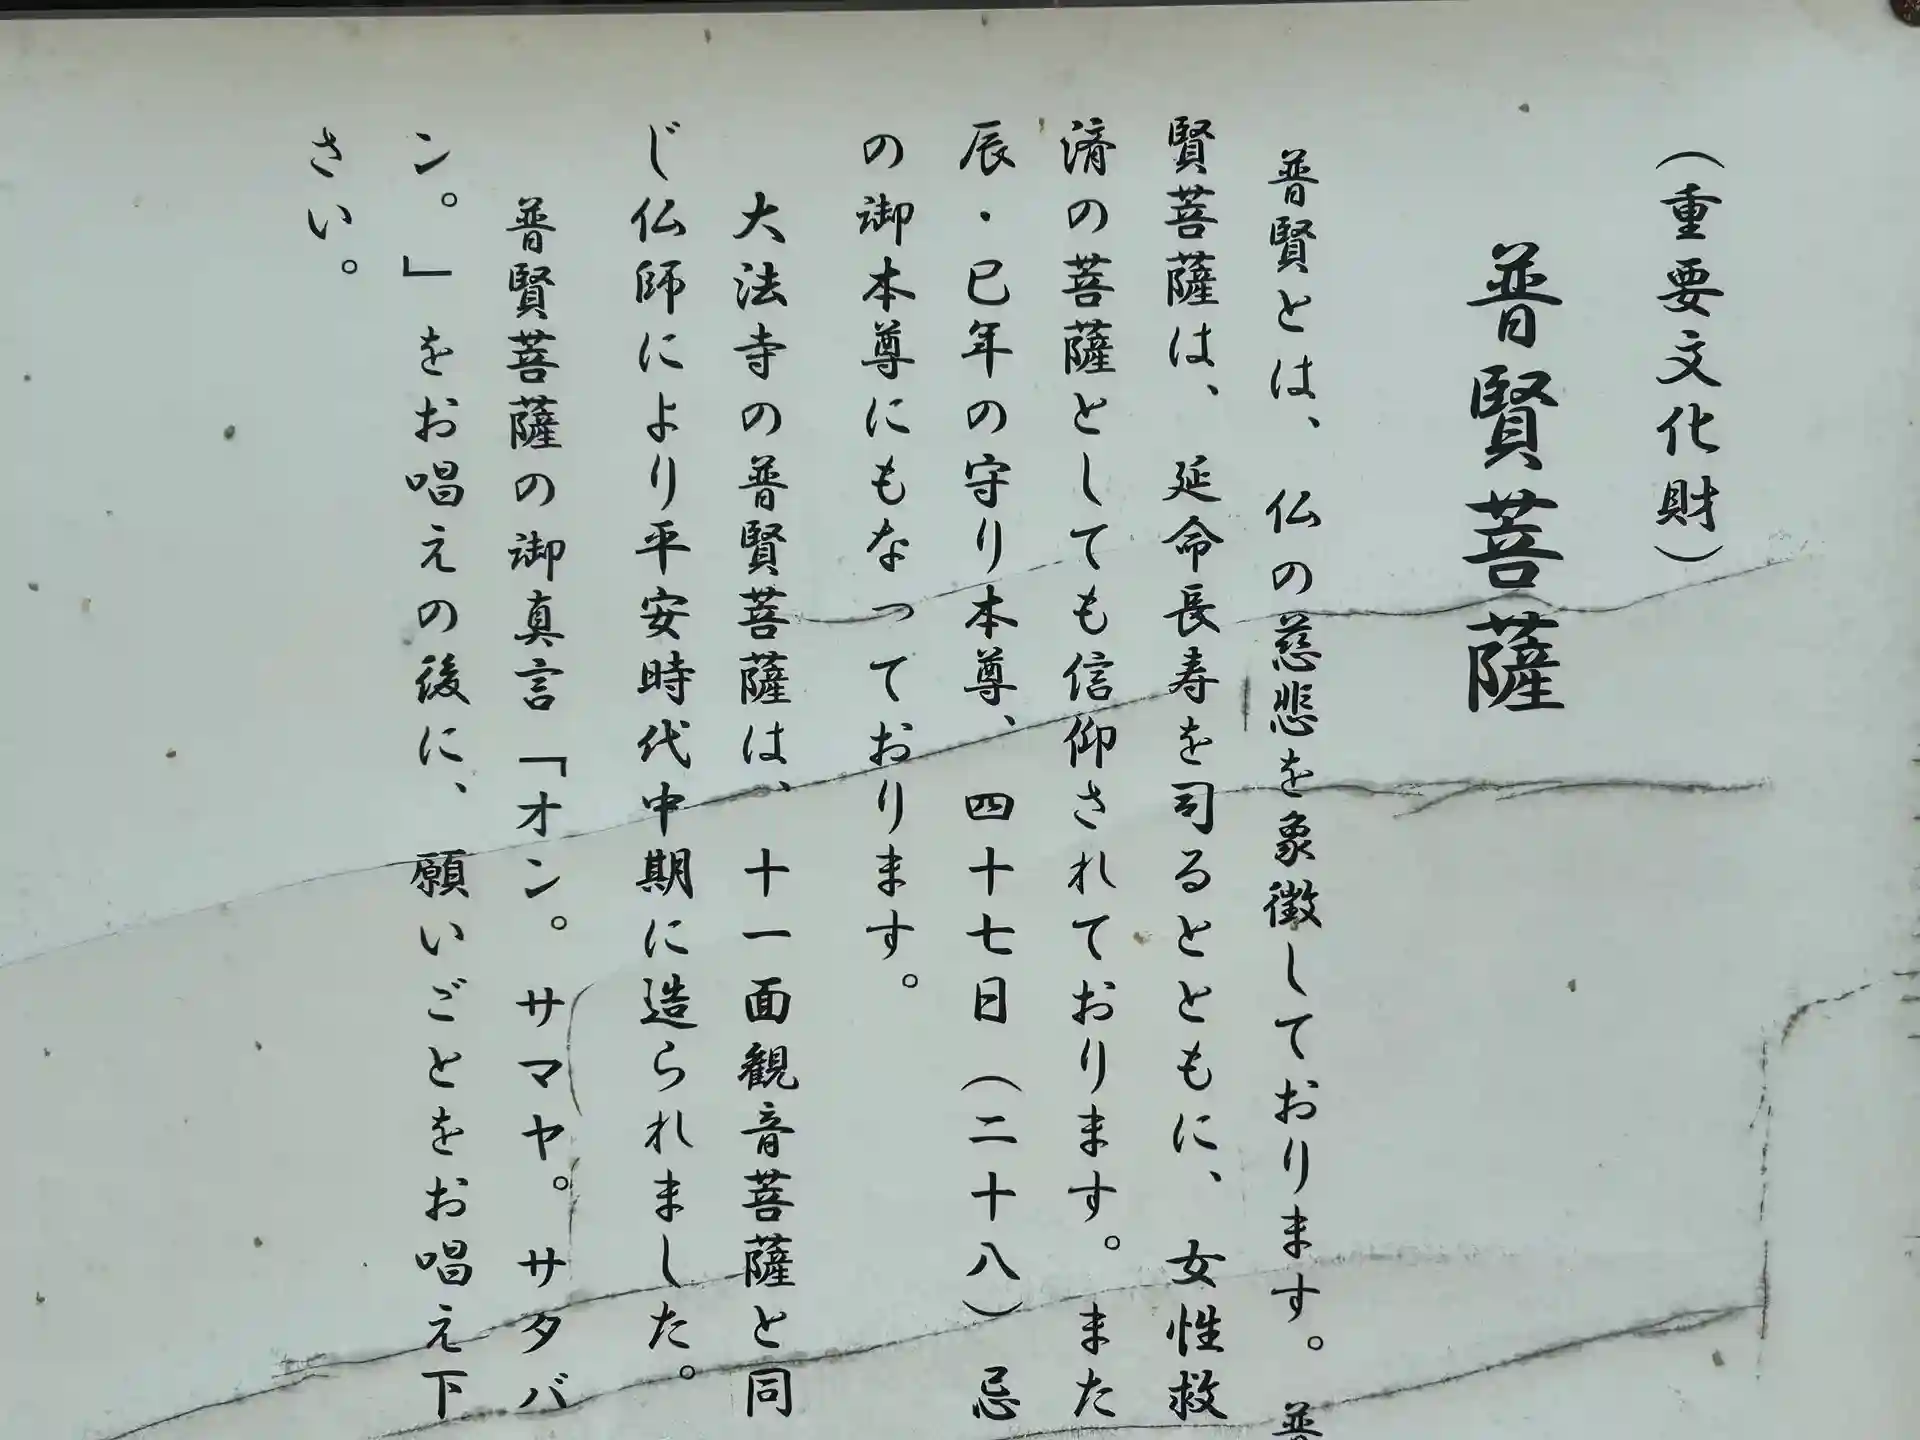 （重要文化財）
普賢菩薩
普賢とは、仏の慈悲を象徴しております。普
賢菩薩は、延命長寿を司るとともに、女性救
済の菩薩としても信仰されております。また
辰・巳年の守り本尊、四十七日（二十八）忌
の御本尊にもなっております。
大法寺の普賢菩薩は、十一面観音菩薩と同
じ仏師により平安時代中期に造られました。
普賢菩薩の御真言「オン。サマヤ。サタバ
ン。」をお唱えの後に、願いごとをお唱え下
さい。